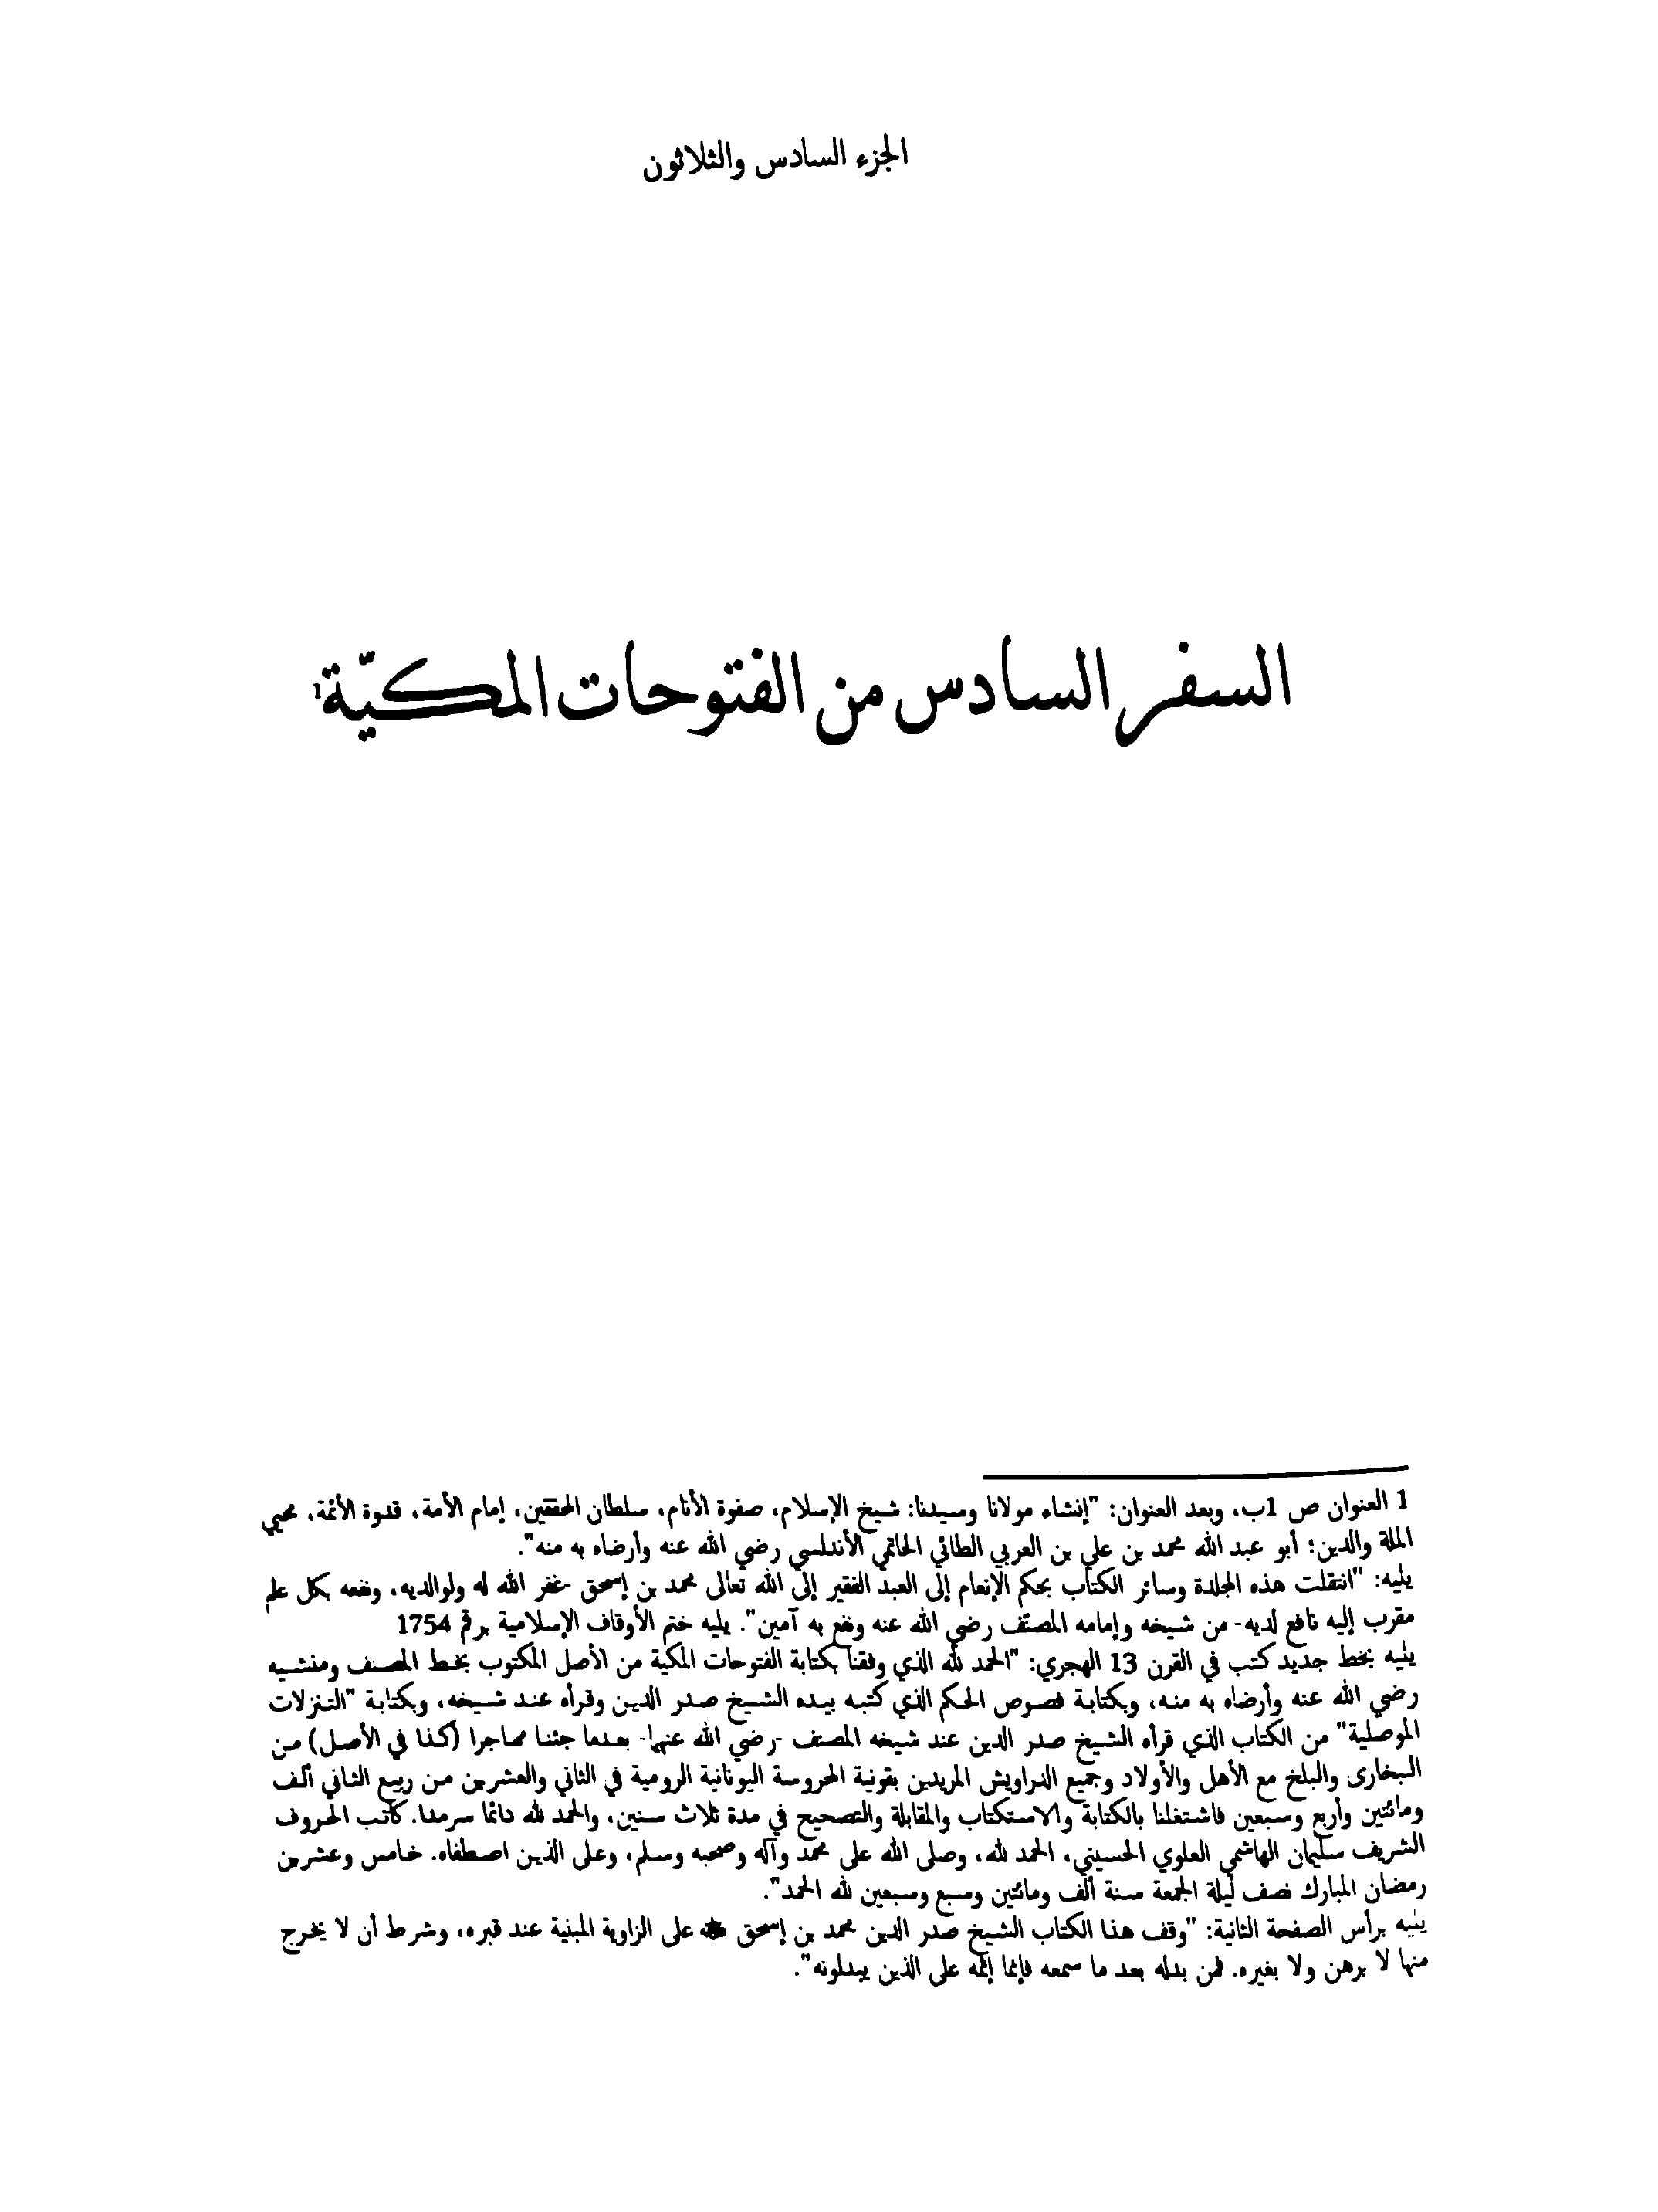 الجزء السادس والثلاثون
السفر السادس من الفتوحات المكيّة1
1 العنوان ص 1ب، وبعد العنوان: "إنشاء مولانا وسيدنا: شيخ الإسلام، صفوة الأنام، سلطان المحققين، إمام الأمة، قدوة الأئمة، محيي
الملة والدين؛ أبو عبد الله محمد بن علي بن العربي الطائي الحاتمي الأندلسي رضي الله عنه وأرضاه به منه".
يليه: "انتقلت هذه المجلدة وسائر الكتاب بحكم الإنعام إلى العبد الفقير إلى الله تعالى محمد بن إسحق -غفر الله له ولوالديه، ونفعه بكل علم
مقرب إليه نافع لديه- من شيخه وإمامه المصنّف رضي الله عنه ونفع به آمين". يليه ختم الأوقاف الإسلامية برقم 1754
يليه بخط جديد كتب في القرن 13 الهجري: "الحمد لله الذي وفقنا بكتابة الفتوحات المكية من الأصل المكتوب بخط المصنف ومنشيه
رضي الله عنه وأرضاه به منه، وبكتابة فصوص الحكم الذي كتبه بيده الشيخ صدر الدين وقرأه عند شيخه، وبكتابة "التنزلات
الموصلية" من الكتاب الذي قرأه الشيخ صدر الدين عند شيخه المصنف -رضي الله عنهما- بعدما جئنا مهاجرا (كذا في الأصل) من
البخارى والبلخ مع الأهل والأولاد وجميع الدراويش المريدين بقونية المحروسة اليونانية الرومية في الثاني والعشرين من ربيع الثاني ألف
ومائتين وأربع وسبعين فاشتغلنا بالكتابة والاستكتاب والمقابلة والتصحيح في مدة ثلاث سنين، والحمد لله دائما سرمدا. كاتب الحروف
الشريف سليمان الهاشمي العلوي الحسيني، الحمد لله، وصلى الله على محمد وآله وصحبه وسلم، وعلى الذين اصطفاه. خامس وعشرين
رمضان المبارك نصف ليلة الجمعة سنة ألف ومائتين وسبع وسبعين لله الحمد".
يليه برأس الصفحة الثانية: "وقف هذا الكتاب الشيخ صدر الدين محمد بن إسحق على الزاوية المبنية عند قبره، وشرط أن لا يخرج
منها لا برهن ولا بغيره. فمن بدله بعد ما سمعه فإنما إثمه على الذين يبدلونه".